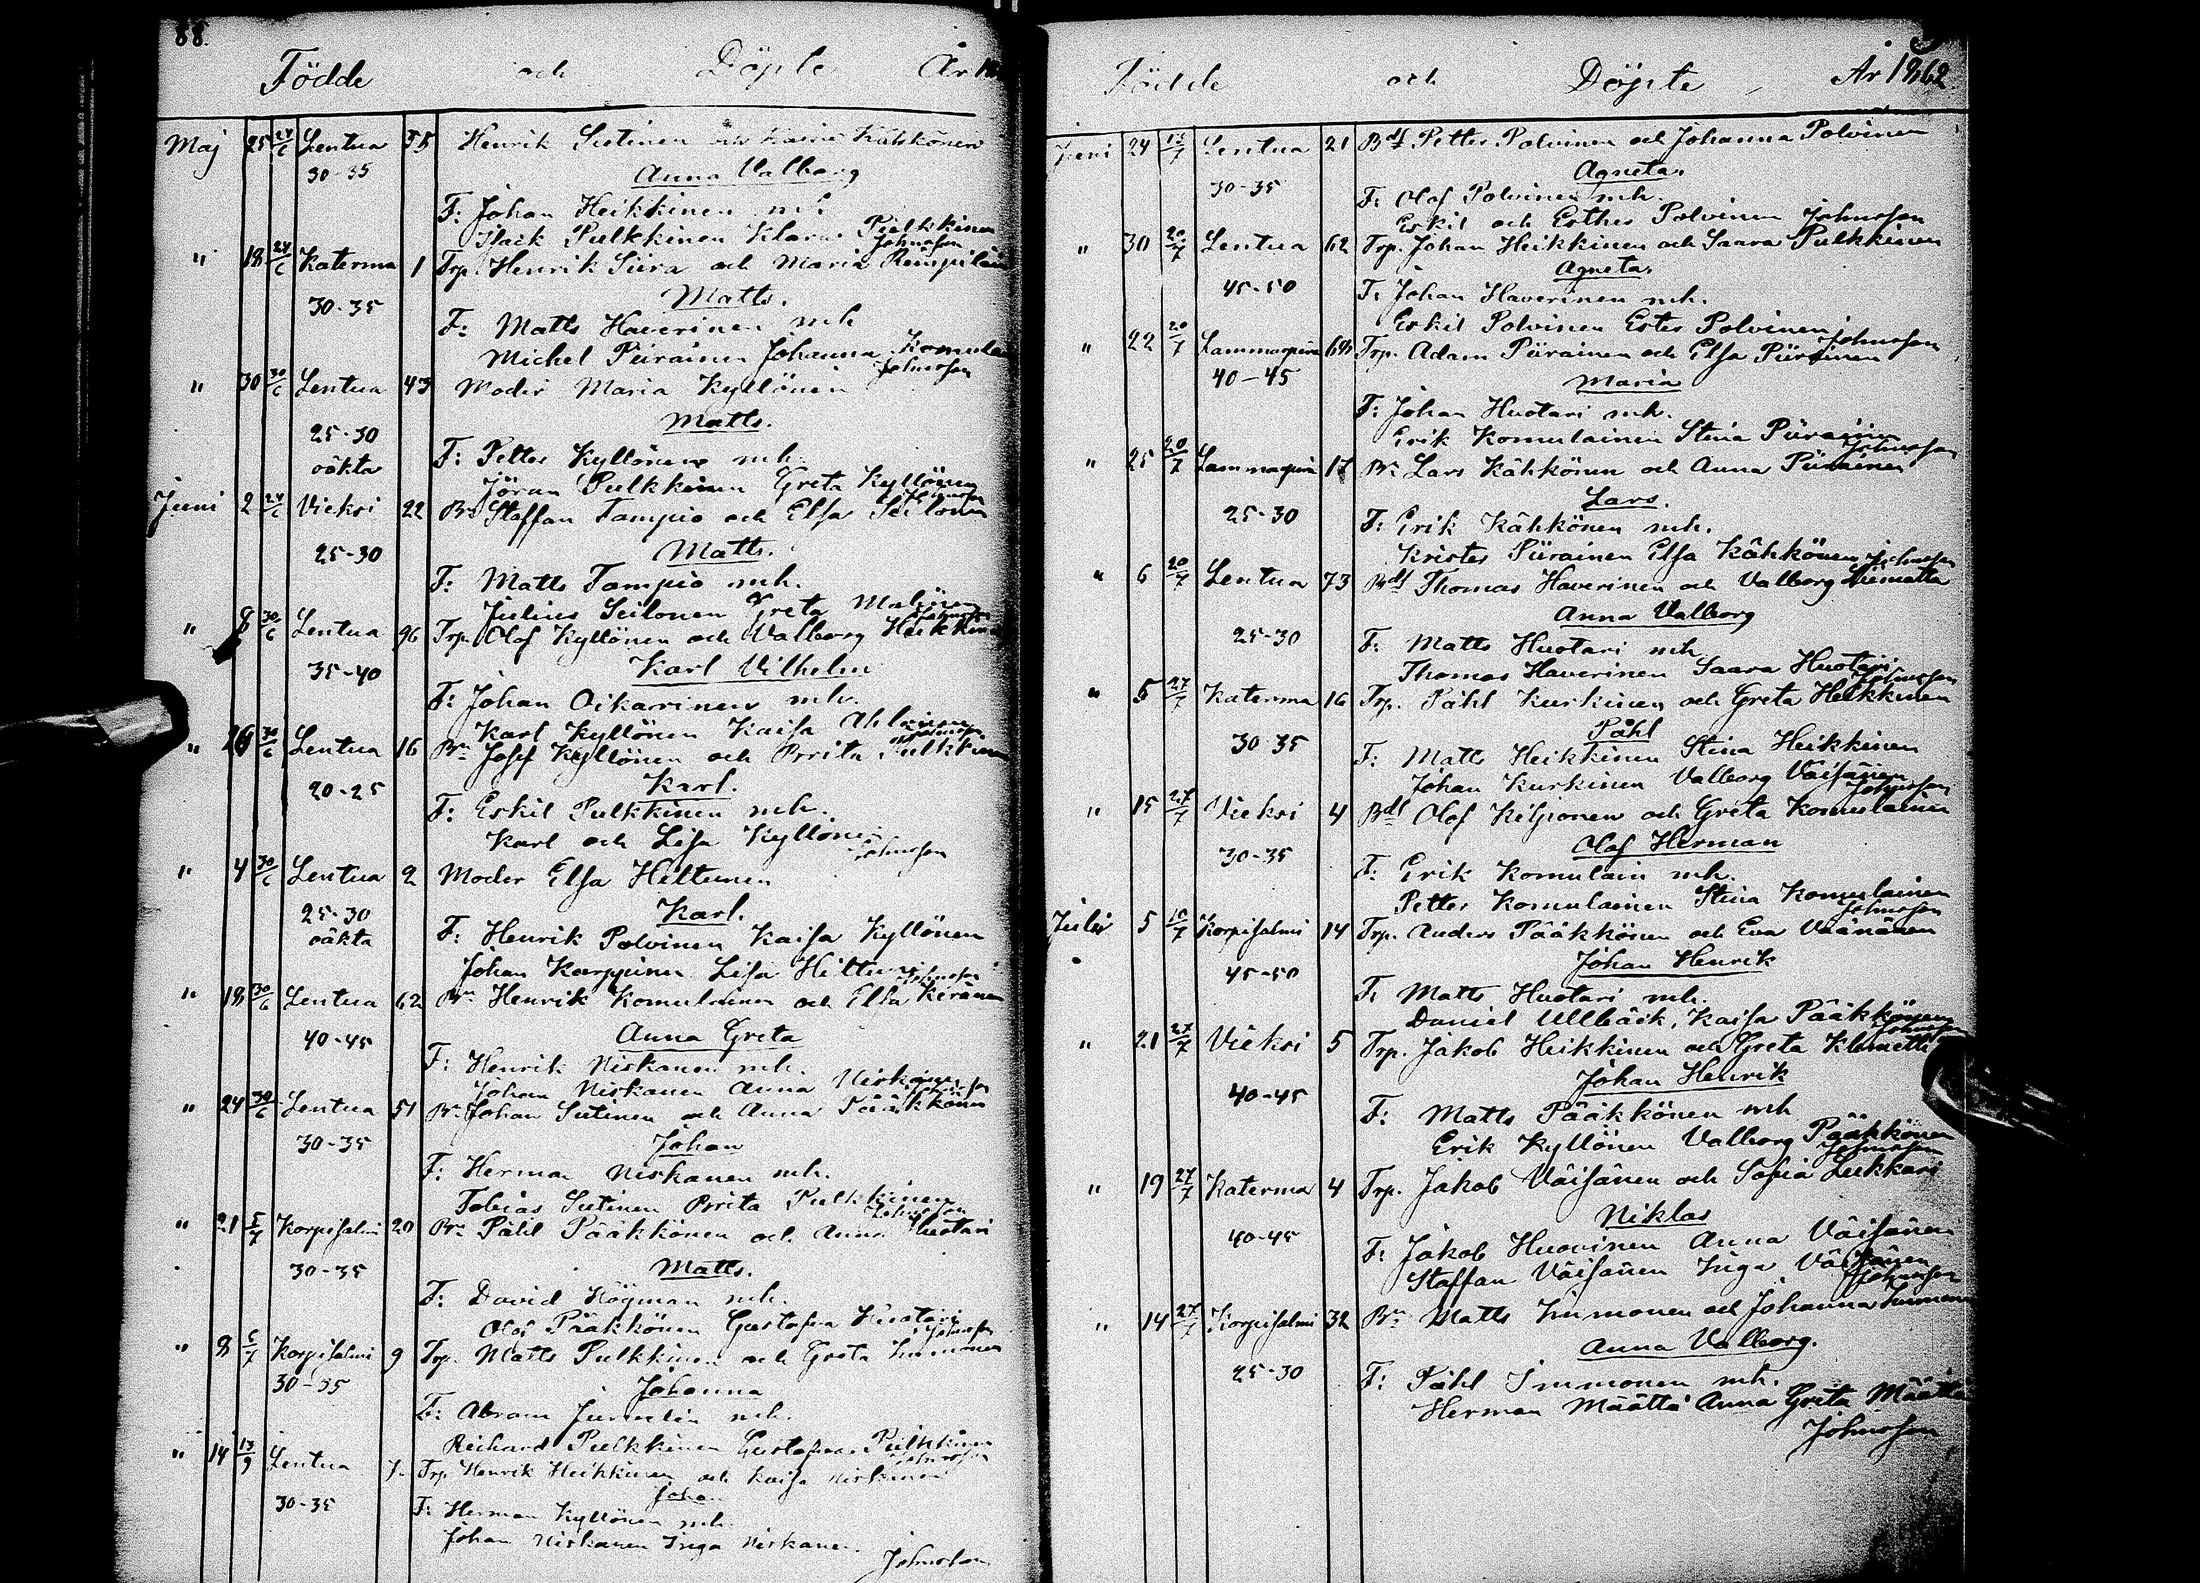 88.
Födde och Döpte År
Maj 25 24/6 Lentua 55 Henrik Sutinen och Kaisa Kähkönen
30-35 Anna Valborg
F: Johan Heikkinen mh.
Isack Pulkkinen Klara Pulkkinen
Johnsson
" 18 24/6 Katerma 1 Trp. Henrik Siira och Maria Reinpilain
30-35 Matts.
F: Matts Haverinen mh
Michel Piirainen Johanna Komula
Johnsson
" 30 30/6 Lentua 43 Moder Maria Kyllönen
25-30 Matts.
oäkta F: Petter Kyllönen mh.
Jöran Pulkkinen Greta Kyllönen
Johnsson
Juni 2 24/6 Vieksi 22 Bn Staffan Tampio och Elsa Seilonen
25-30 Matts.
F: Matts Tampio mh.
Julius Seilonen Greta Malinen
Johnsson
" 8 30/6 Lentua 96 Trp. Olof Kyllönen och Valborg Heikkinen
35-40 Karl Vilhelm
F: Johan Oikarinen mh.
Karl Kyllönen Kaisa Ahlainen
Johnsson
" 26 30/6 Lentua 16 Bn Josef Kyllönen och Brita Pulkkinen
20-25 Karl.
F: Eskil Pulkkinen mh.
Karl och Lisa Kyllönen
Johnsson
" 4 30/6 Lentua 2 Moder Elsa Heltunen
25-30 Karl.
oäkta F: Henrik Polvinen Kaisa Kyllönen
Johan Karppinen Lisa Hiltunen
Johnsson
" 18 30/6 Lentua 62 Bn Henrik Komulainen och Elsa Keränen
40-45 Anna Greta
F: Henrik Niskanen mh.
Johan Niskanen Anna Niskanen
Johnsson
" 24 30/6 Lentua 51 Bn Johan Sutinen och Anna Pääkkönen
30-35 Johan
F: Herman Niskanen mh.
Tobias Sutinen Brita Pulkkinen
Johnsson
" 21 5/7 Korpisalmi 20 Bn Påhl Pääkkönen och Anna Huotari
30-35 Matts.
F: David Högman mh.
Olof Pääkkönen Gustafva Huotari
Johnsson
" 8 6/7 Korpisalmi 9 Trp. Matts Pulkkinen och Greta Immonen
30-35 Johanna
F: Abram Junnelin mh.
Richard Pulkkinen Gustafva Pulkkinen
Johnsson
" 14 13/9 Lentua Trp Henrik Heikkinen och Kaisa Niskanen
Johan
30-35 F: Herman Kyllönen mh.
Johan Niskanen Inga Niskanen.
Johnsson
Födde och Döpte År 1862
Juni 24 13/7 Lentua 21 Bdf Petter Polvinen och Johanna Polvinen
Agneta.
30-35 F: Olof Polvinen mh.
Eskil och Esther Polvinen Johnsson
" 30 20/7 Lentua 62 Trp. Johan Heikkinen och Saara Pulkkinen
Agneta.
45-50 F: Johan Haverinen mh.
Eskil Polvinen Ester Polvinen Johnsson
" 22 20/7 Lammaspera Trp. Adam Piirainen och Elsa Piirainen
40-45 Maria
F: Johan Huotari mh.
Erik Komulainen Stina Piirainen
Johnsson
" 25 20/7 Lammaspera 17 Bn Lars Kähkönen och Anna Piirainen
Lars.
25-30 F: Erik Kähkönen mh.
Krister Piirainen Elsa Kähkönen Johnsson
" 6 20/7 Lentua 73 Bdf Thomas Haverinen och Valborg
Anna Valborg
25-30 F: Matts Huotari mh.
Thomas Haverinen Saara Huotari
Johnsson
" 5 27/7 Katerma 16 Trp. Påhl Kurkinen och Greta Heikkinen
Påhl
30-35 F: Matts Heikkinen Stina Heikkinen
Johan Kurkinen Valborg Väisänen
Johnsson
" 15 27/7 Vieksi 4 Bdf Olof Kiljonen och Greta Komulainen
Olof Herman
30-35 F: Erik Komulain mh.
Petter Komulainen Stina Komulainen
Johnsson
Julii 5 10/7 Korpisalmi 14 Trp. Anders Pääkkönen och Eva Väänänen
Johan Henrik
45-50 F: Matts Huotari mh.
Daniel Ullbäck, Kaisa Pääkkönen
Johnsson
" 21 27/7 Vieksi 5 Trp. Jakob Heikkinen och Greta Klemetti
Johan Henrik
40-45 F: Matts Pääkkönen mh
Erik Kyllönen Valborg Pääkkönen
Johnsson
" 19 27/7 Katerma 4 Trp. Jakob Väisänen och Sofia Leikkari
Niklas
40-45 F: Jakob Huovinen Anna Väisänen
Staffan Väisänen Inga Väisänen
Johnsson
" 14 27/7 Korpisalmi 32 Bn Matts Immonen och Johanna Immonen
Anna Valborg.
25-30 F: Påhl Immonen mh.
Herman Määttä Anna Greta Määttä
Johnsson